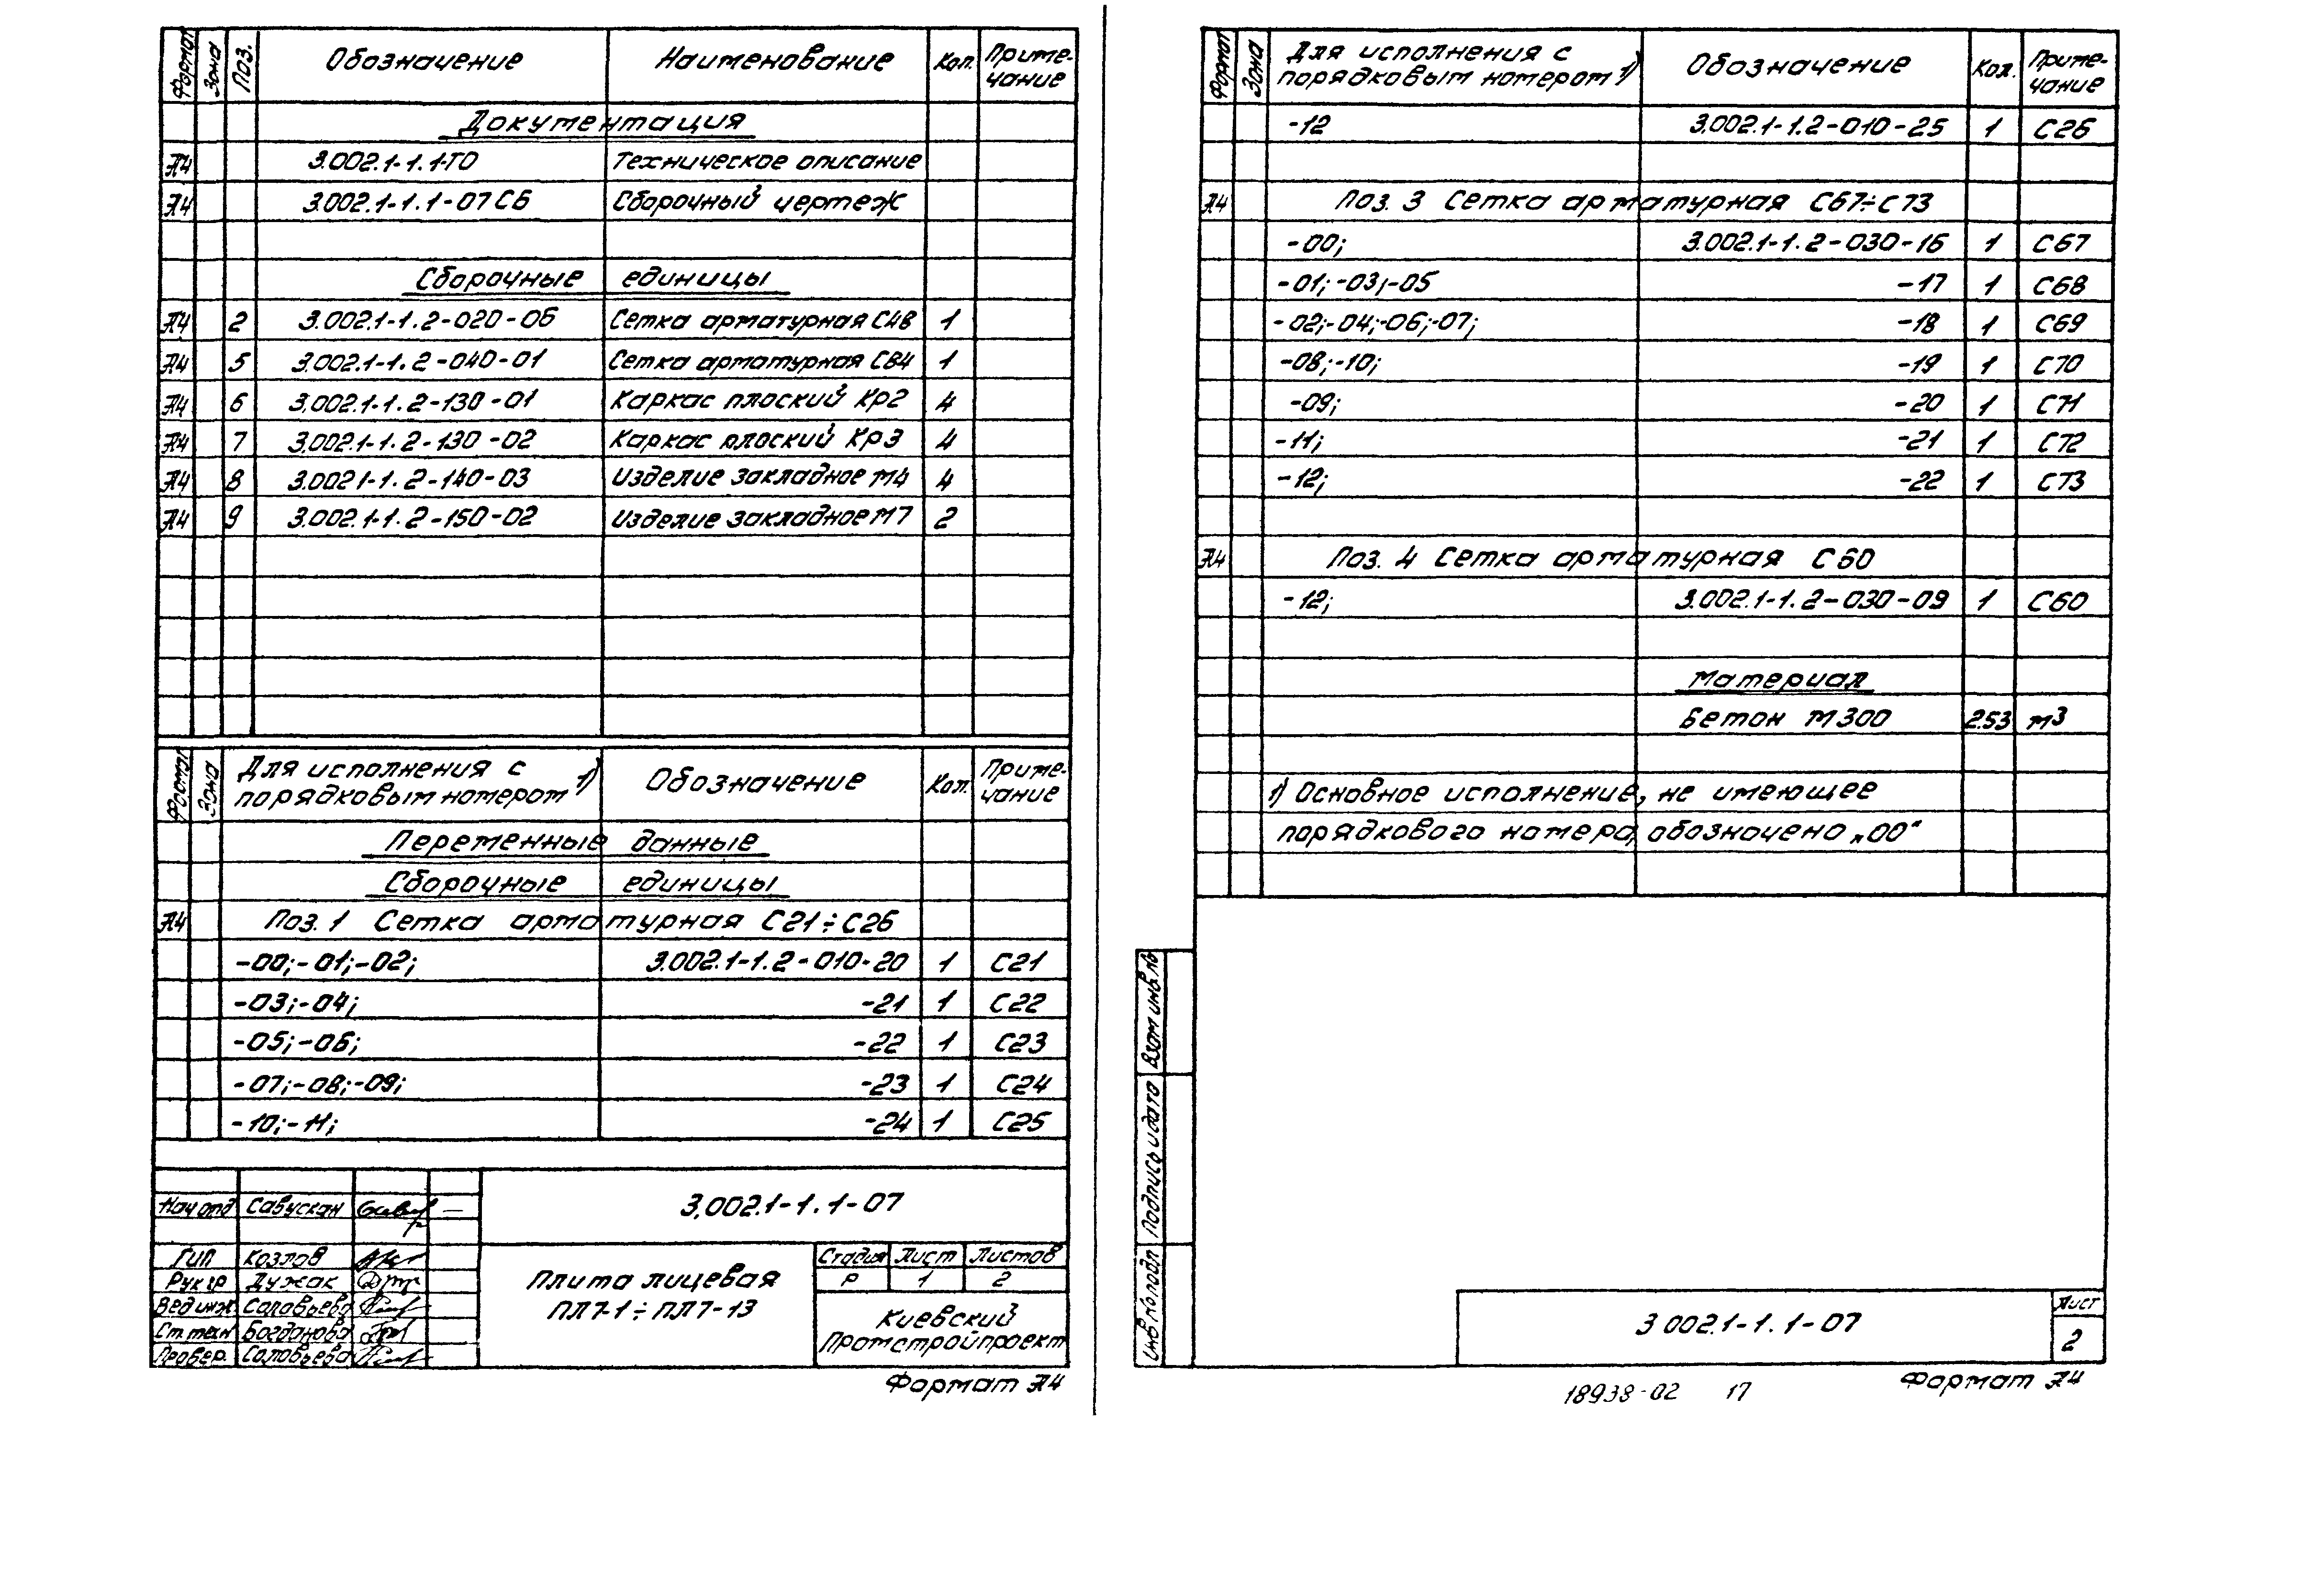 Формат Зона Поз. Обозначение Наименование Кол. Приме-чание
Документация
А4 3.002.1-1.1-ТО Техническое описание
А4 3.002.1-1.1-07СБ Сборочный чертеж
Сборочные единицы
А4 2 3.002.1-1.2-020-06 Сетка арматурная С48 1
А4 5 3.002.1-1.2-040-01 Сетка арматурная С84 1
А4 6 3.002.1-1.2-130-01 Каркас плоский Кр2 4
А4 7 3.002.1-1.2-130-02 Каркас плоский Кр3 4
А4 8 3.002.1-1.2-140-03 Изделие закладное М4 4
А4 9 3.002.1-1.2-150-02 Изделие закладное М7 2
Формат Зона Для исполнения с порядковым номером 1) Обозначение Кол. Приме-чание
Переменные данные
Сборочные единицы
А4 Поз. 1 Сетка арматурная С21÷С26
-00;-01;-02; 3.002.1-1.2-010-20 1 С21
-03;-04; -21 1 С22
-05;-06; -22 1 С23
-07;-08;-09; -23 1 С24
-10;-11; -24 1 С25
3.002.1-1.1-07
Нач отд Савускан
Гип Козлов
Рук гр Дужак
Вед инж. Соловьева
Ст техн Богданова
Провер. Соловьева
Плита лицевая
ПЛ7-1÷ПЛ7-13
Стадия Лист Листов
Р 1 2
Киевский
Промстройпроект
Формат А4
Формат Зона Для исполнения с порядковым номером 1) Обозначение Кол. Приме-чание
-12 3.002.1-1.2-010-25 1 С26
А4 Поз. 3 Сетка арматурная С67÷С73
-00; 3.002.1-1.2-030-16 1 С67
-01;-03;-05 -17 1 С68
-02;-04;-06;-07; -18 1 С69
-08;-10; -19 1 С70
-09; -20 1 С71
-11; -21 1 С72
-12; -22 1 С73
А4 Поз. 4 Сетка арматурная С60
-12; 3.002.1-1.2-030-09 1 С60
Материал
Бетон М300 2.53 м3
1) Основное исполнение, не имеющее
порядкового номера, обозначено „00“
Взам инв №
Подпись и дата
Инв № подл
3.002.1-1.1-07
Лист
2
18938-02 17
Формат А4